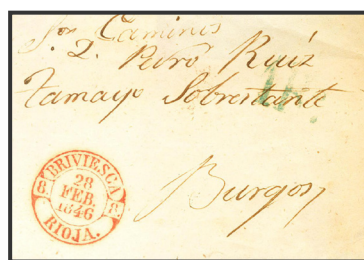 Caminos
D. Pedro Ruiz
Tamayo Sobrestante
Burgos
BRIVIESCA
8 28 8
FEB.
1846
RIOJA.